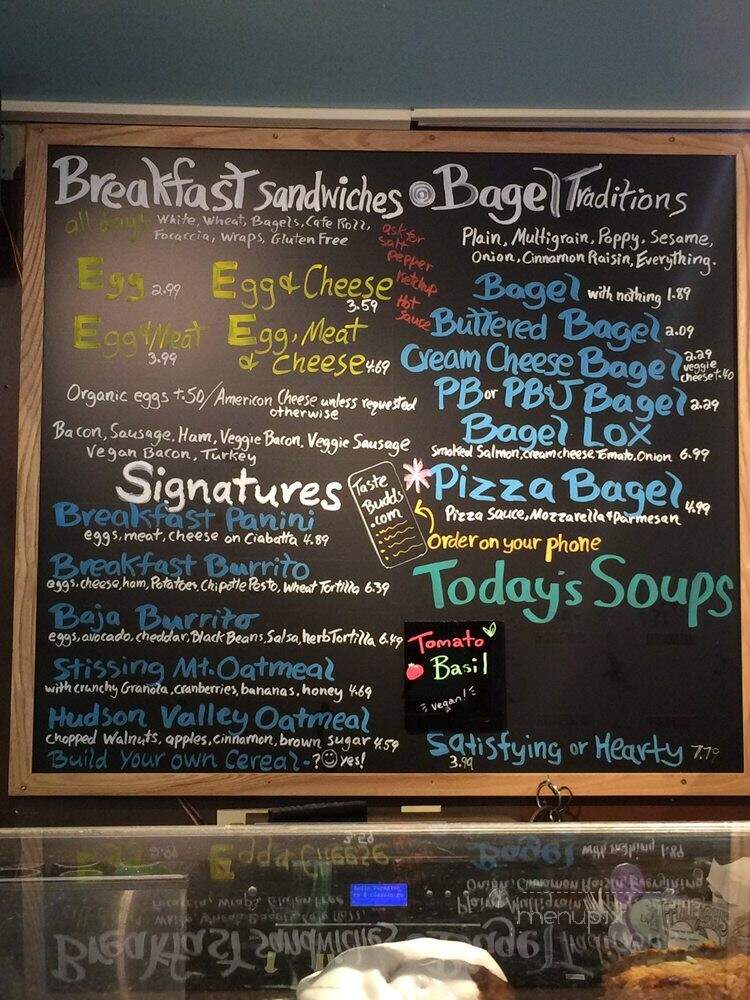 Breakfast Sandwiches
all day!
White, Wheat, Bagels, Cafe Roll,
Focaccia, Wraps, Gluten Free
ask for
salt
pepper
ketchup
Hot
Sauce
Egg 2.99
Egg & Cheese
3.59
Egg & Meat
3.99
Egg, Meat
& Cheese 4.69
Organic eggs +.50/American Cheese unless requested
otherwise
Bacon, Sausage, Ham, Veggie Bacon, Veggie Sausage
Vegan Bacon, Turkey
Signatures
Breakfast Panini
eggs, meat, cheese on Ciabatta 4.89
Breakfast Burrito
eggs, cheese, ham, Potatoes, Chipotle Pesto, Wheat Tortilla 6.39
Baja Burrito
eggs, avocado, cheddar, Black Beans, Salsa, herb Tortilla 6.49
Stissing Mt. Oatmeal
with crunchy Granola, cranberries, bananas, honey 4.69
Hudson Valley Oatmeal
chopped Walnuts, apples, cinnamon, brown sugar 4.59
Build Your own Cereal - ? yes!
Bagel Traditions
Plain, Multigrain, Poppy, Sesame,
Onion, Cinnamon Raisin, Everything.
Bagel with nothing 1.89
Buttered Bagel 2.09
Cream Cheese Bagel 2.29
veggie
cheese +.40
PB or PB&J Bagel 2.29
Bagel Lox
Smoked Salmon, cream cheese, Tomato, Onion 6.99
Pizza Bagel 4.99
Pizza Sauce, Mozzarella & Parmesan
Taste
Budds
.com
Order on your phone
Today's Soups
Tomato
Basil
vegan!
Satisfying or Hearty 7.79
3.99
menupix